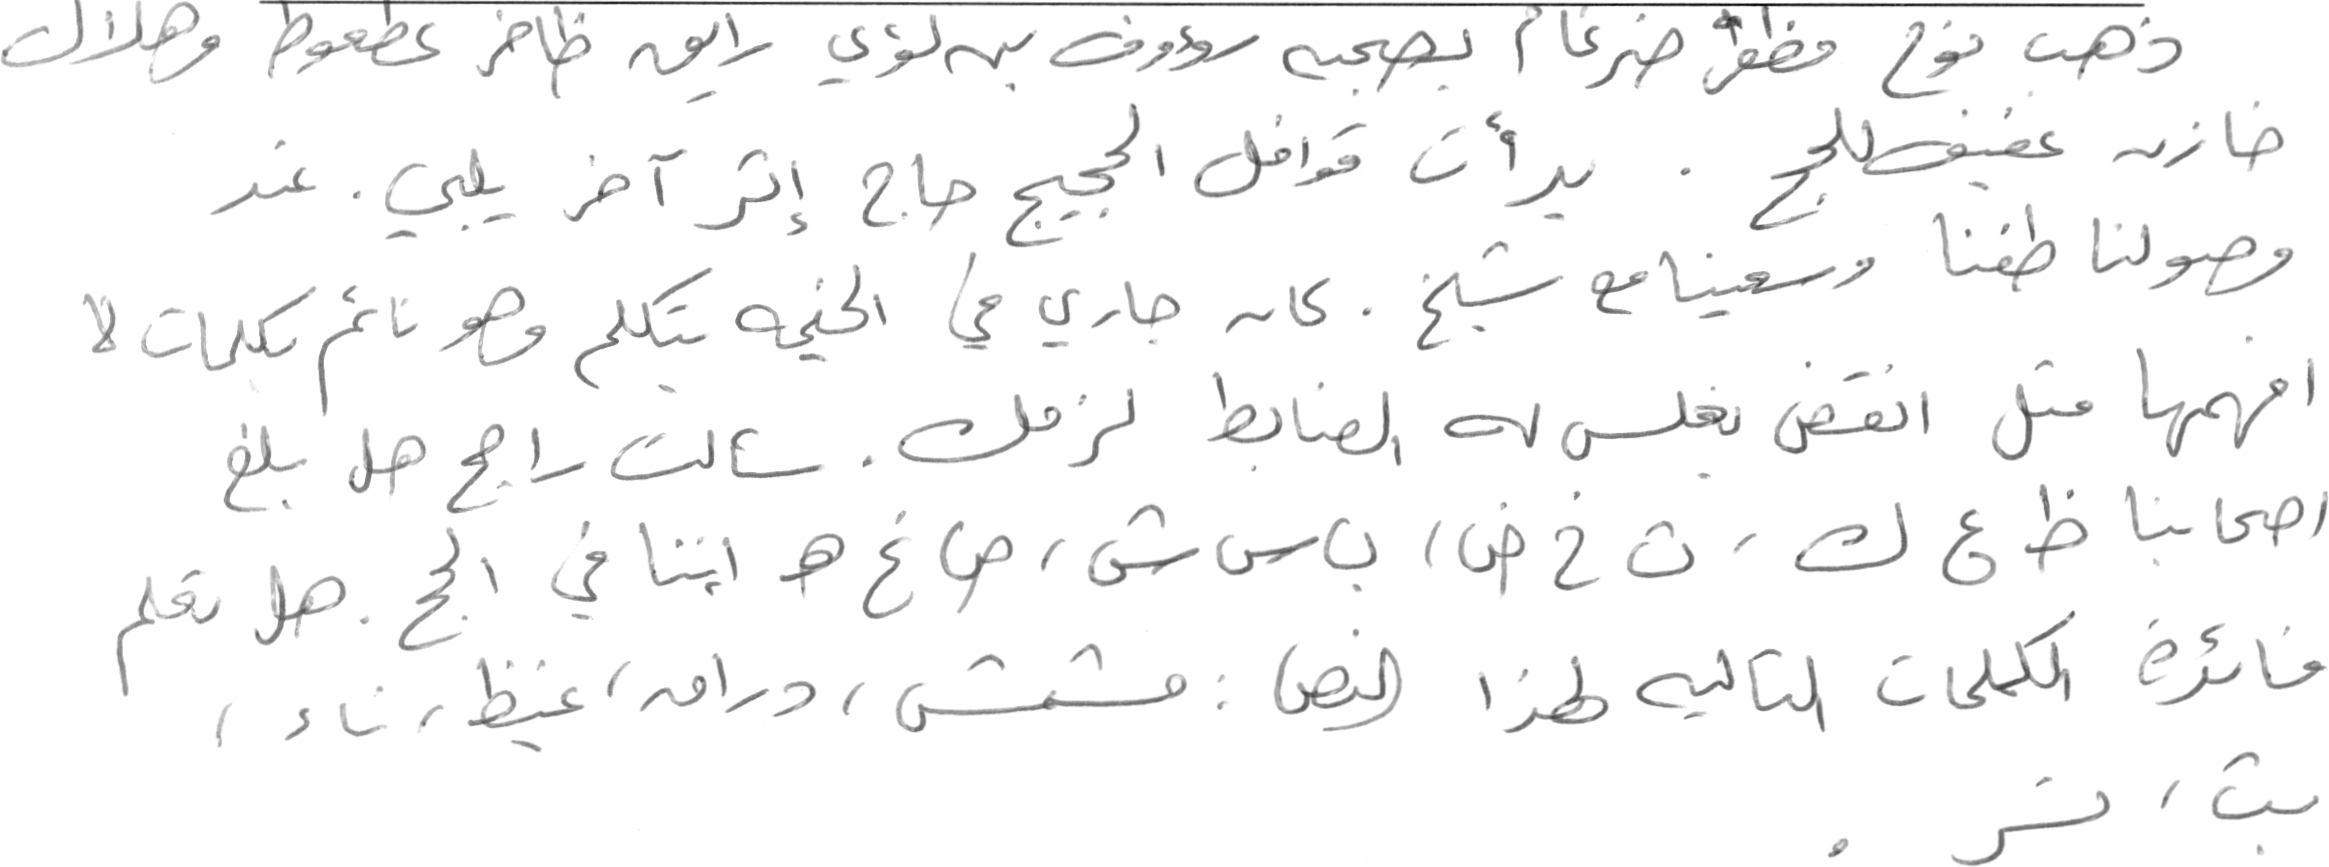 ذهب نوح مظفر ضرغام بصحبه رؤوف بن لؤي رائق ظافر عطعوط وهلال
خازن عفيف للحج . بدأت قوافل الحجيج حاج إثر آخر يلبي . عند
وصولنا طفنا وسعينا مع شيخ . كان جاري في الخيمه يتكلم وهو نائم بكلمات لا
افهمها مثل انقض بغلس له الضابط لزملك . سئلت راجح هل بلغ
اصحابنا ظ ع ك ، ث خ ض ، ب س ش ، ص غ هـ اننا في الحج . هل تعلم
فائدة الكلمات التاليه لهذا النص : مشمش ، دراق ، غيظ ، ناء ،
بث ، نر .